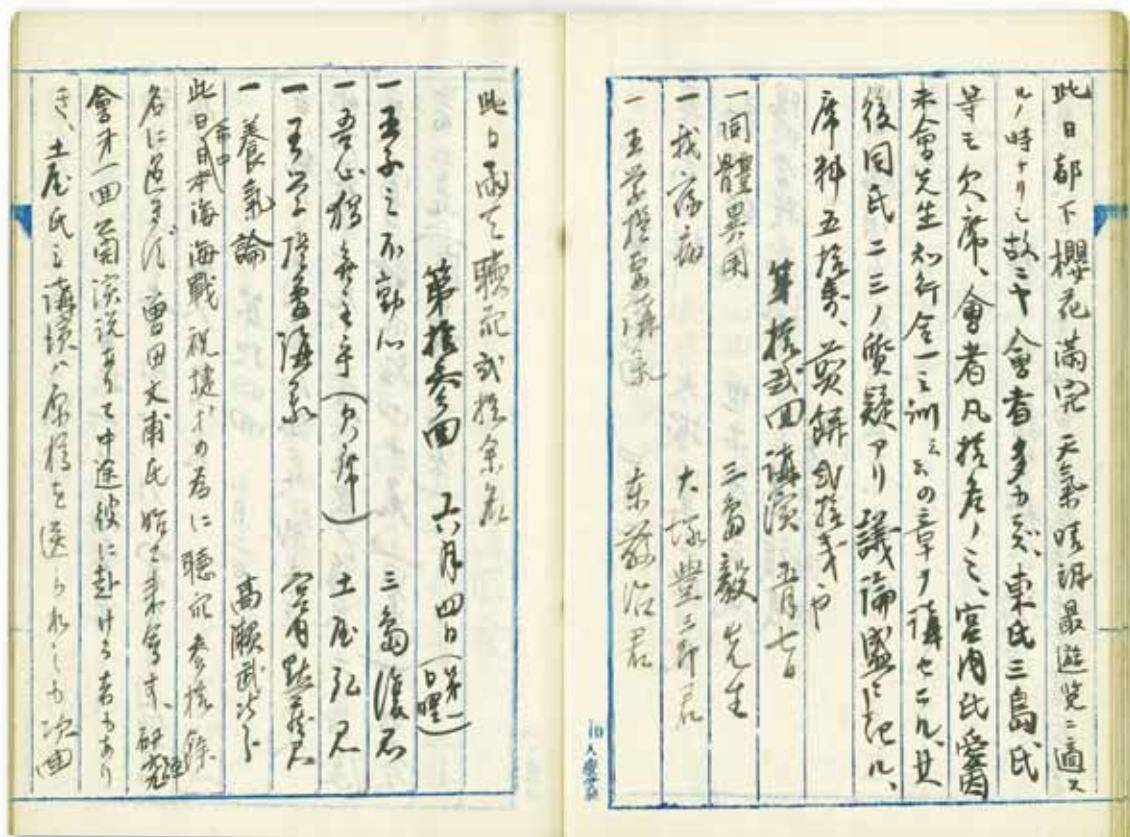 此日都下櫻花滿完天氣晴朗最遊覧ニ適ス
ルノ時ナリシ故ニヤ會者多カラズ、東氏三島氏
等モ欠席、會者凡拾名ノミ、宮内氏愛酉
未會先生知行合一之訓云々の章ヲ講セラル、其
後同氏二三ノ質疑アリ議論盛ニ起ル、
席料五拾銭、煎餅弐拾銭也
第拾弐回講演 五月七日
一同體異用 三島毅先生
一我病 大塚豊三郎君
一王学提要講義 東敬治君
此日雨天聴衆弐拾余名
第拾参回 六月四日(第一日曜)
一孟子之不動心 三島復君
一吾心猶無主乎(欠席) 土屋弘君
一王学提要講義 宮内黙蔵君
一養氣論 高瀬武次郎
此日市中日本海海戰祝捷才の為に聴衆参拾餘
名に過ぎず 曽田文甫氏始て来會す、研究
會才一回公開演説ありて中途彼に赴ける者もあり
き、土屋氏之講壇ハ原稿を送られしも次回